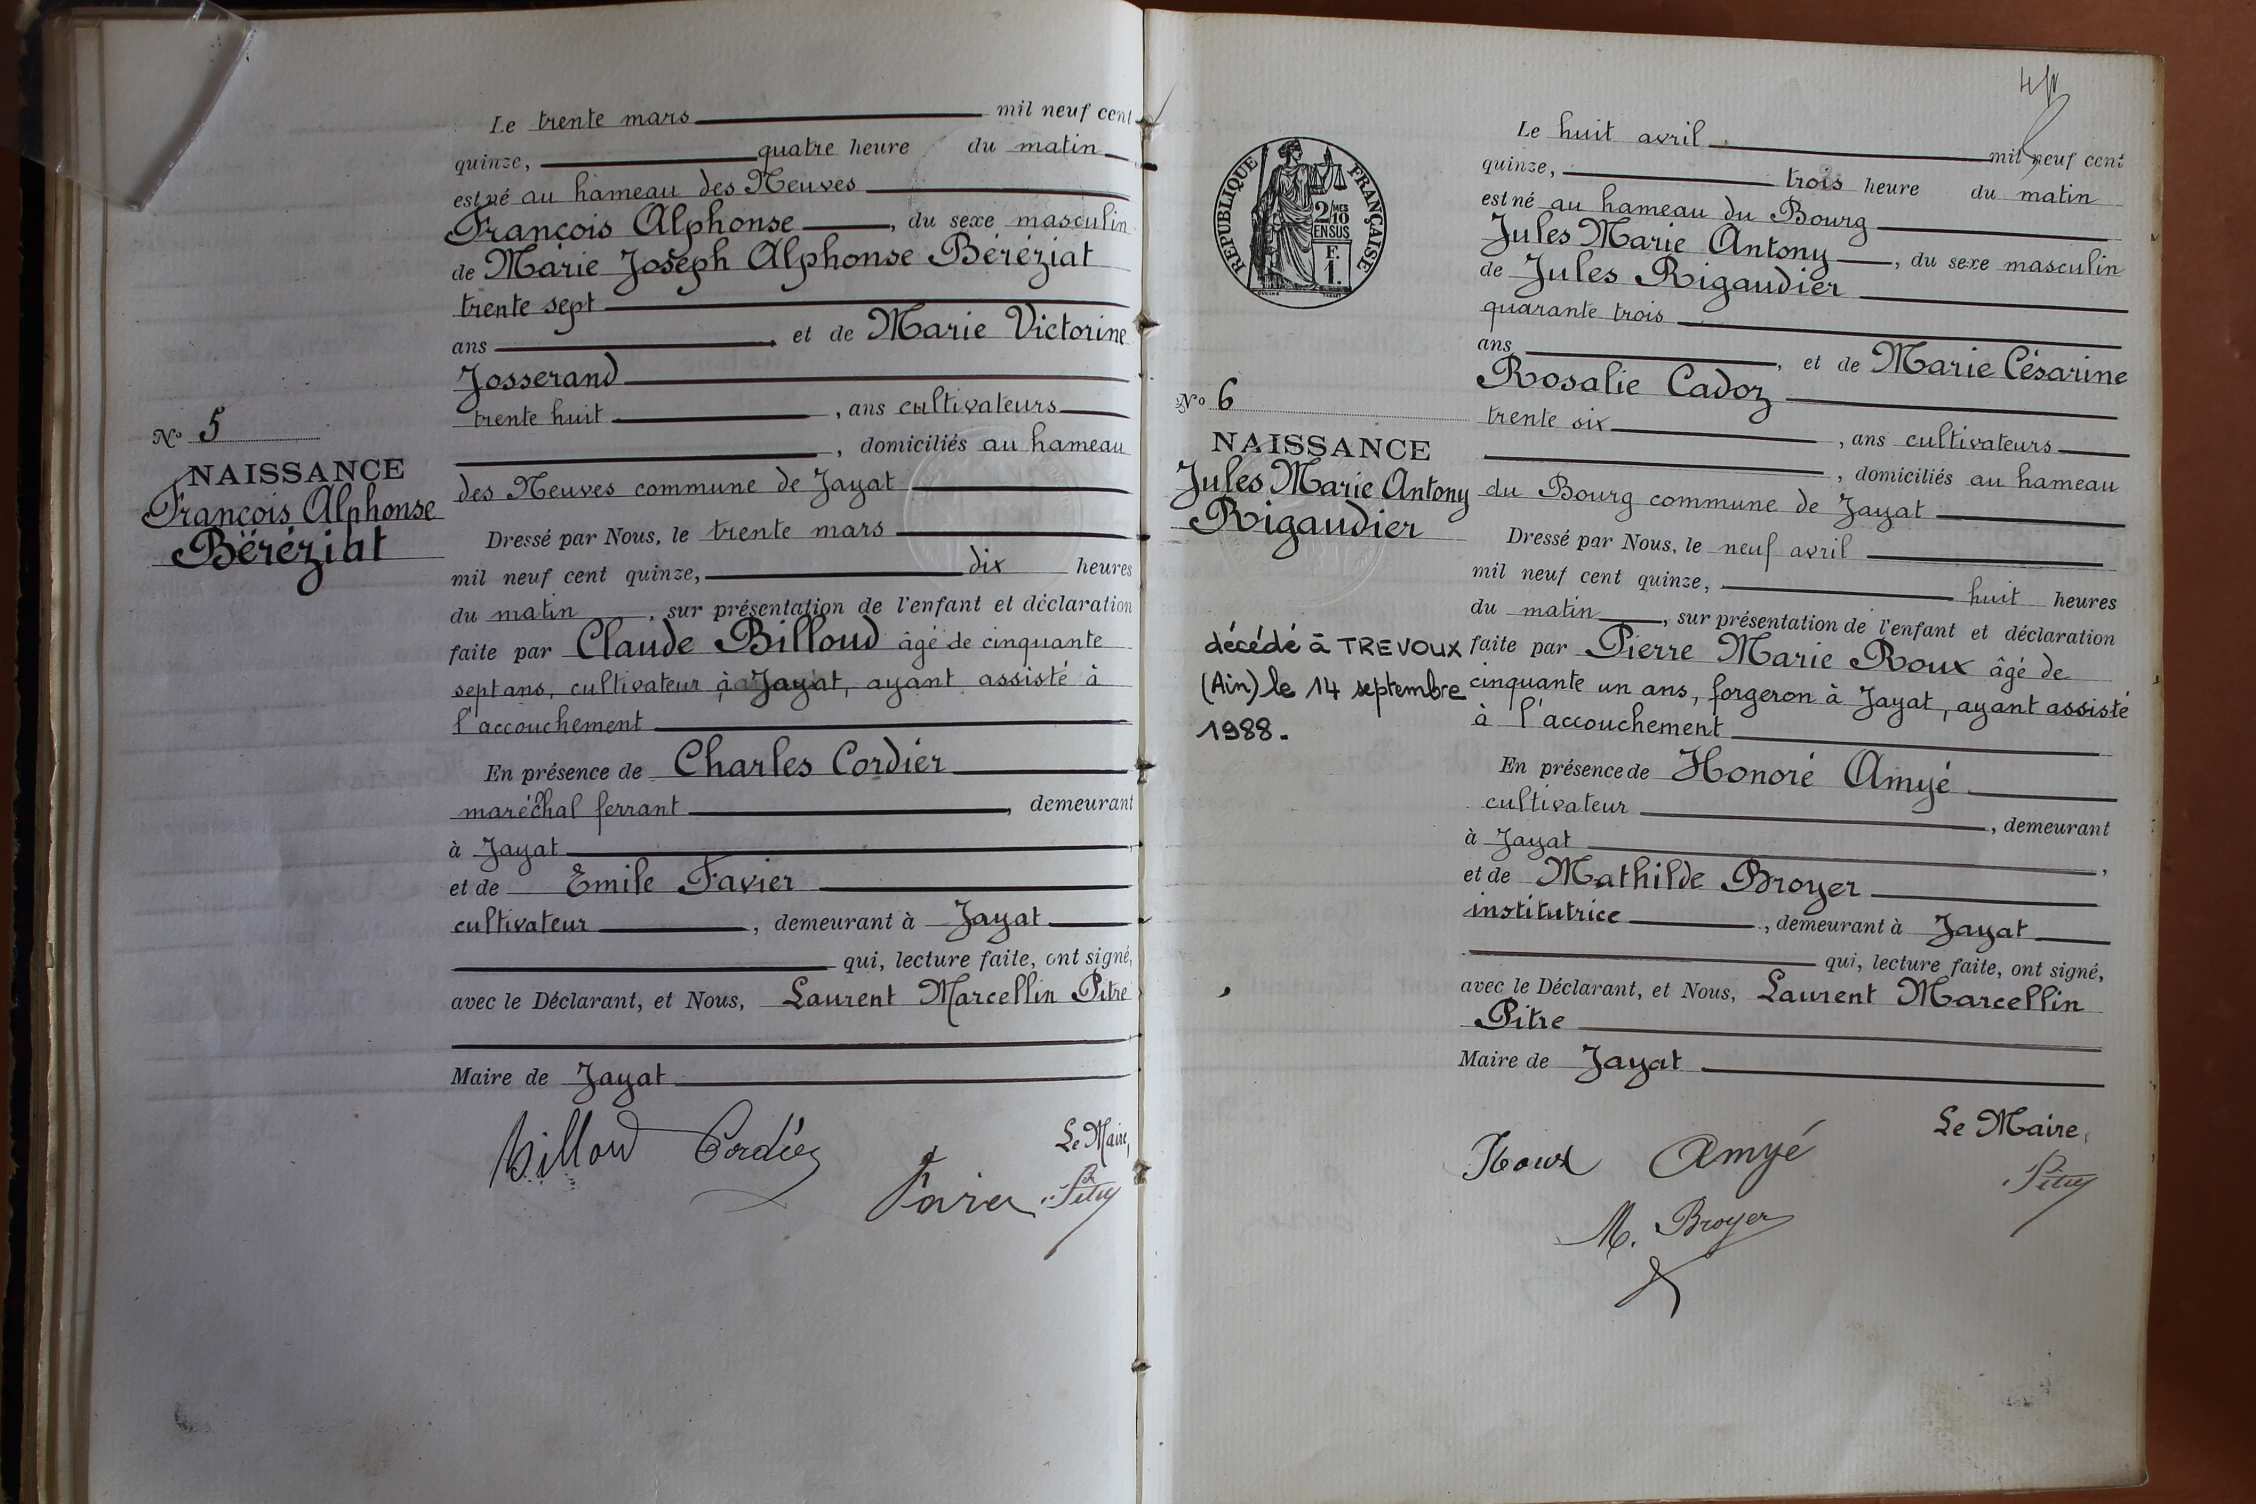 Le trente mars mil neuf cent
quinze, quatre heure du matin
est né au hameau des Neuves
François Alphonse, du sexe masculin
de Marie Joseph Alphonse Béréziat
trente sept
ans et de Marie Victorine
Josserand
trente huit, ans cultivateurs
, domiciliés au hameau
des Neuves commune de Jayat
Dressé par Nous, le trente mars
mil neuf cent quinze, dix heures
du matin, sur présentation de l'enfant et déclaration
faite par Claude Billoud âgé de cinquante
sept ans, cultivateur à Jayat, ayant assisté à
l'accouchement
En présence de Charles Cordier
maréchal ferrant, demeurant
à Jayat
et de Emile Favier
cultivateur, demeurant à Jayat
qui, lecture faite, ont signé,
avec le Déclarant, et Nous, Laurent Marcellin Pitre
Maire de Jayat
Le Maire,
Billoud Cordier
Favier Pitre
No 5
NAISSANCE
François Alphonse
Béréziat
Le huit avril mil neuf cent
quinze, trois heure du matin
est né au hameau du Bourg
Jules Marie Antony, du sexe masculin
de Jules Rigaudier
quarante trois
ans, et de Marie Césarine
Rosalie Cadoz
trente six, ans cultivateurs
, domiciliés au hameau
du Bourg commune de Jayat
Dressé par Nous, le neuf avril
mil neuf cent quinze, huit heures
du matin, sur présentation de l'enfant et déclaration
faite par Pierre Marie Roux âgé de
cinquante un ans, forgeron à Jayat, ayant assisté
à l'accouchement
En présence de Honoré Amyé
cultivateur, demeurant
à Jayat,
et de Mathilde Broyer
institutrice, demeurant à Jayat
qui, lecture faite, ont signé,
avec le Déclarant, et Nous, Laurent Marcellin
Pitre
Maire de Jayat
Le Maire,
Roux Amyé Pitre
M. Broyer
RÉPUBLIQUE FRANÇAISE
2/MES
10
EN SUS
F.
1.
No 6
NAISSANCE
Jules Marie Antony
Rigaudier
décédé à TREVOUX
(Ain) le 14 septembre
1988.